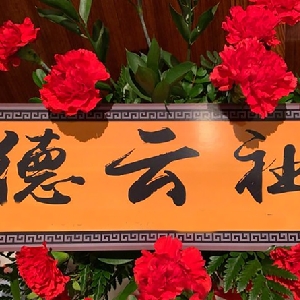 德云社